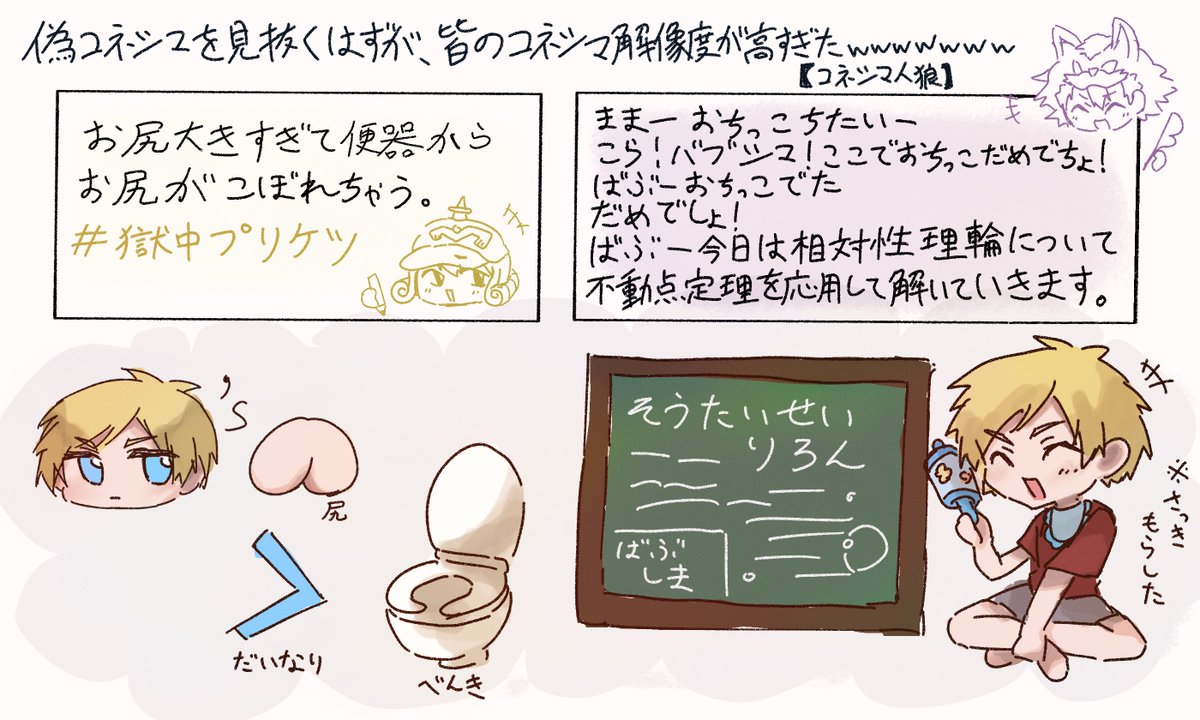 偽コネシマを見抜くはずが、皆のコネシマ解像度が高すぎたwwwwwww
【コネシマ人狼】
お尻大きすぎて便器から
お尻がこぼれちゃう。
#獄中プリケツ
ままー おちっこちたいー
こら!バブシマ!ここでおちっこだめでちょ!
ばぶーおちっこでた
だめでしょ!
ばぶー今日は相対性理輪について
不動点定理を応用して解いていきます。
's
尻
だいなり
べんき
そうたいせい
りろん
ばぶ
しま
※さっき
もらした